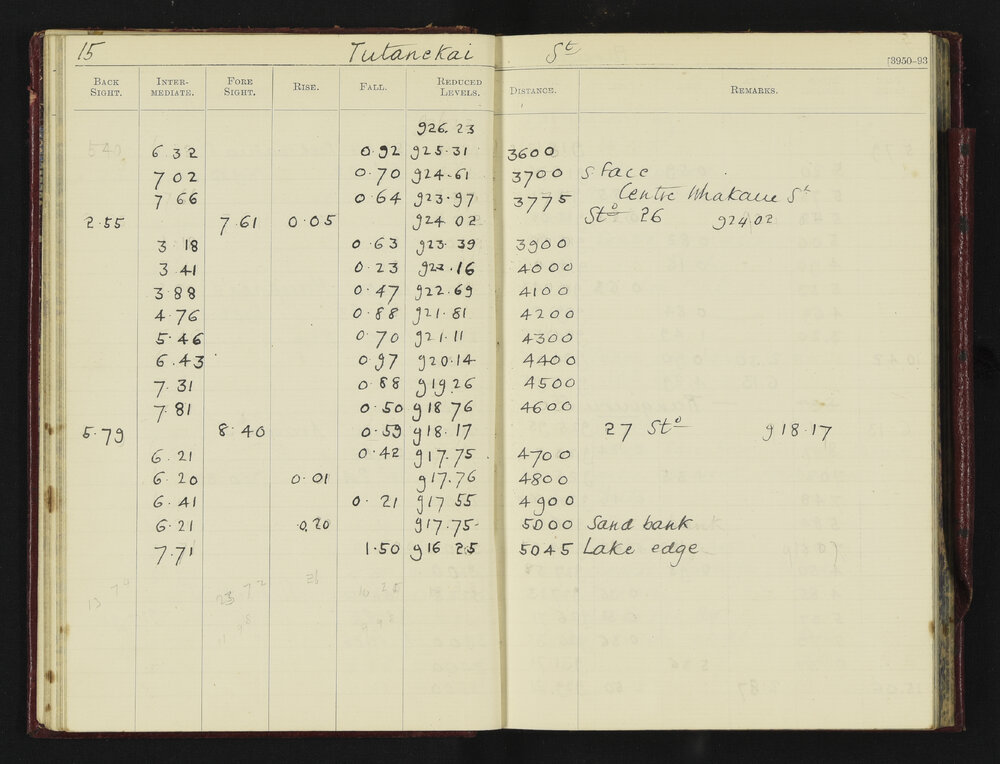 15 Tutanekai St
[3950-93
BACK SIGHT. INTER-MEDIATE. FORE SIGHT. RISE. FALL. REDUCED LEVELS. DISTANCE. REMARKS.
926.23
6 32 0.92 925.31 3600
7 02 0.70 924.61 3700 S Face
7 66 0.64 923.97 3775 Centre Whakaue St
2.55 7.61 0.05 924 02 Stn 26 924 02
3 18 0.63 923 39 3900
3 41 0.23 923.16 4000
3 88 0.47 922.69 4100
4.76 0.88 921.81 4200
5.46 0.70 921.11 4300
6.43 0.97 920.14 4400
7.31 0.88 919.26 4500
7.81 0.50 918 76 4600
5.79 8.40 0.59 918.17 27 Stn 918.17
6.21 0.42 917.75 4700
6.20 0.01 917.76 4800
6.41 0.21 917 55 4900
6.21 0.20 917.75 5000 Sand bank
7.71 1.50 916 25 5045 Lake edge